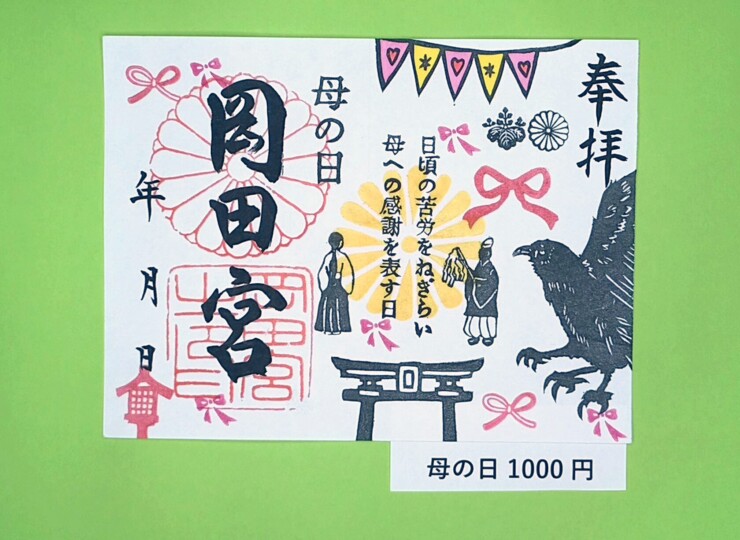 奉拝
日頃の苦労をねぎらい
母への感謝を表す日
母の日
岡田宮
年 月 日
母の日 1000 円